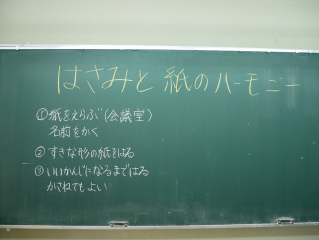 はさみと紙のハーモニー
①紙をえらぶ(会議室)
名前をかく
②すきな形の紙をはる
③いいかんじになるまではる
かさねてもよい